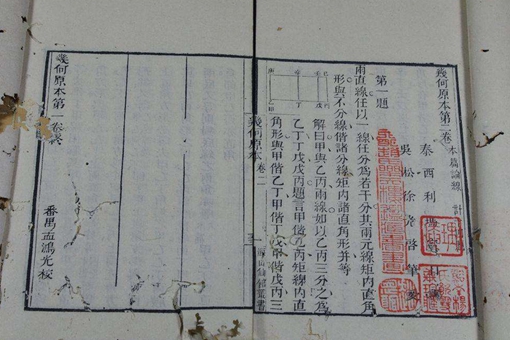 幾何原本第二卷 本篇論線 計
泰西利
吳松徐
筆受
第一題
兩直線任以一線任分為若干分其兩元線矩內直角
形與不分線偕諸分線矩內諸直角形并等
解曰甲與乙丙兩線如以乙丙三分之為
乙丁丁戊戊丙題言甲偕乙丙矩線內直
角形與甲偕乙丁甲偕丁戊甲偕戊丙三
幾何原本 卷二
幾何原本第一卷終
番禺孟鴻光校